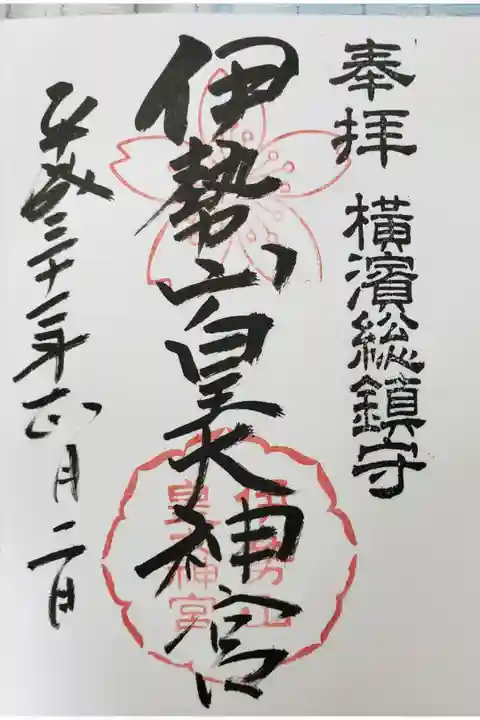 奉拝 横濱総鎮守
伊勢山皇大神宮
伊勢山
皇大神宮
平成三十一年正月二日